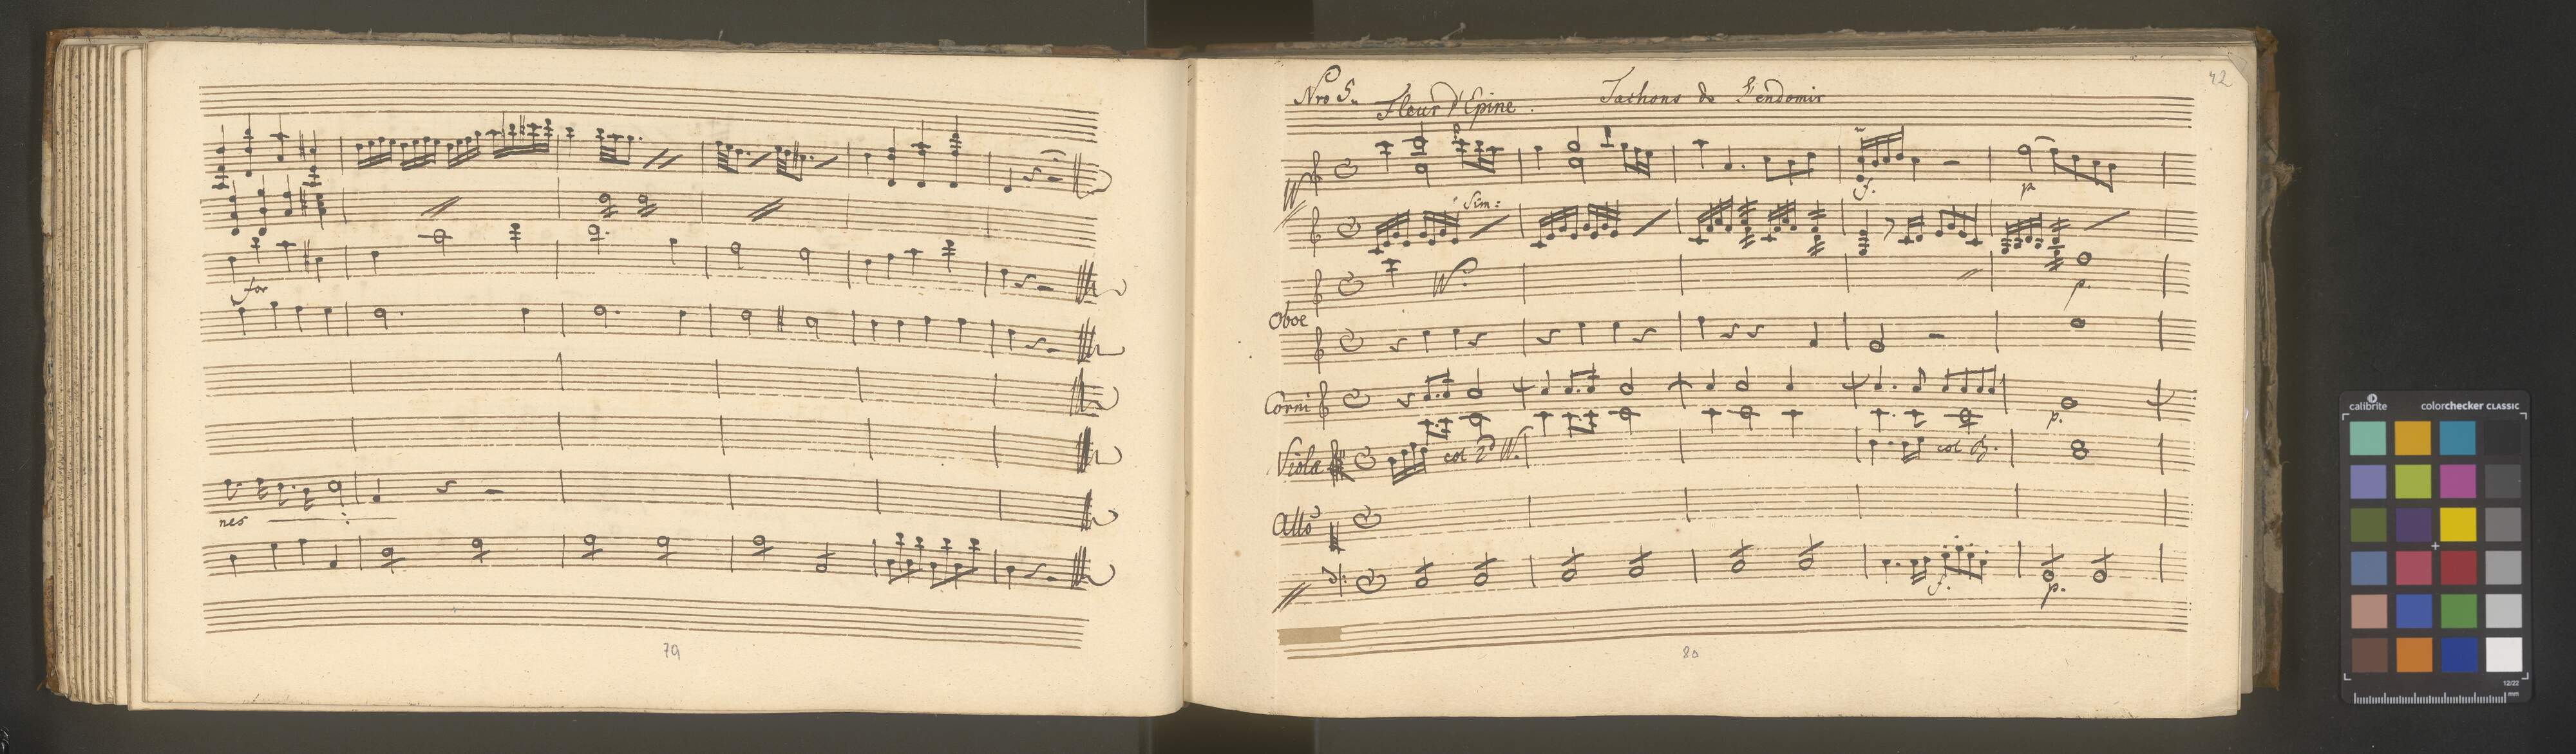 for
nes
79
42
Nro 5.
Fleur d'Epine. Tachons de l'endomir
f. p
Sim:
Oboe
p.
Corni
p.
Viola col 2do W. col B.
Alto
f. p.
80
calibrite colorchecker CLASSIC
12/22
mm